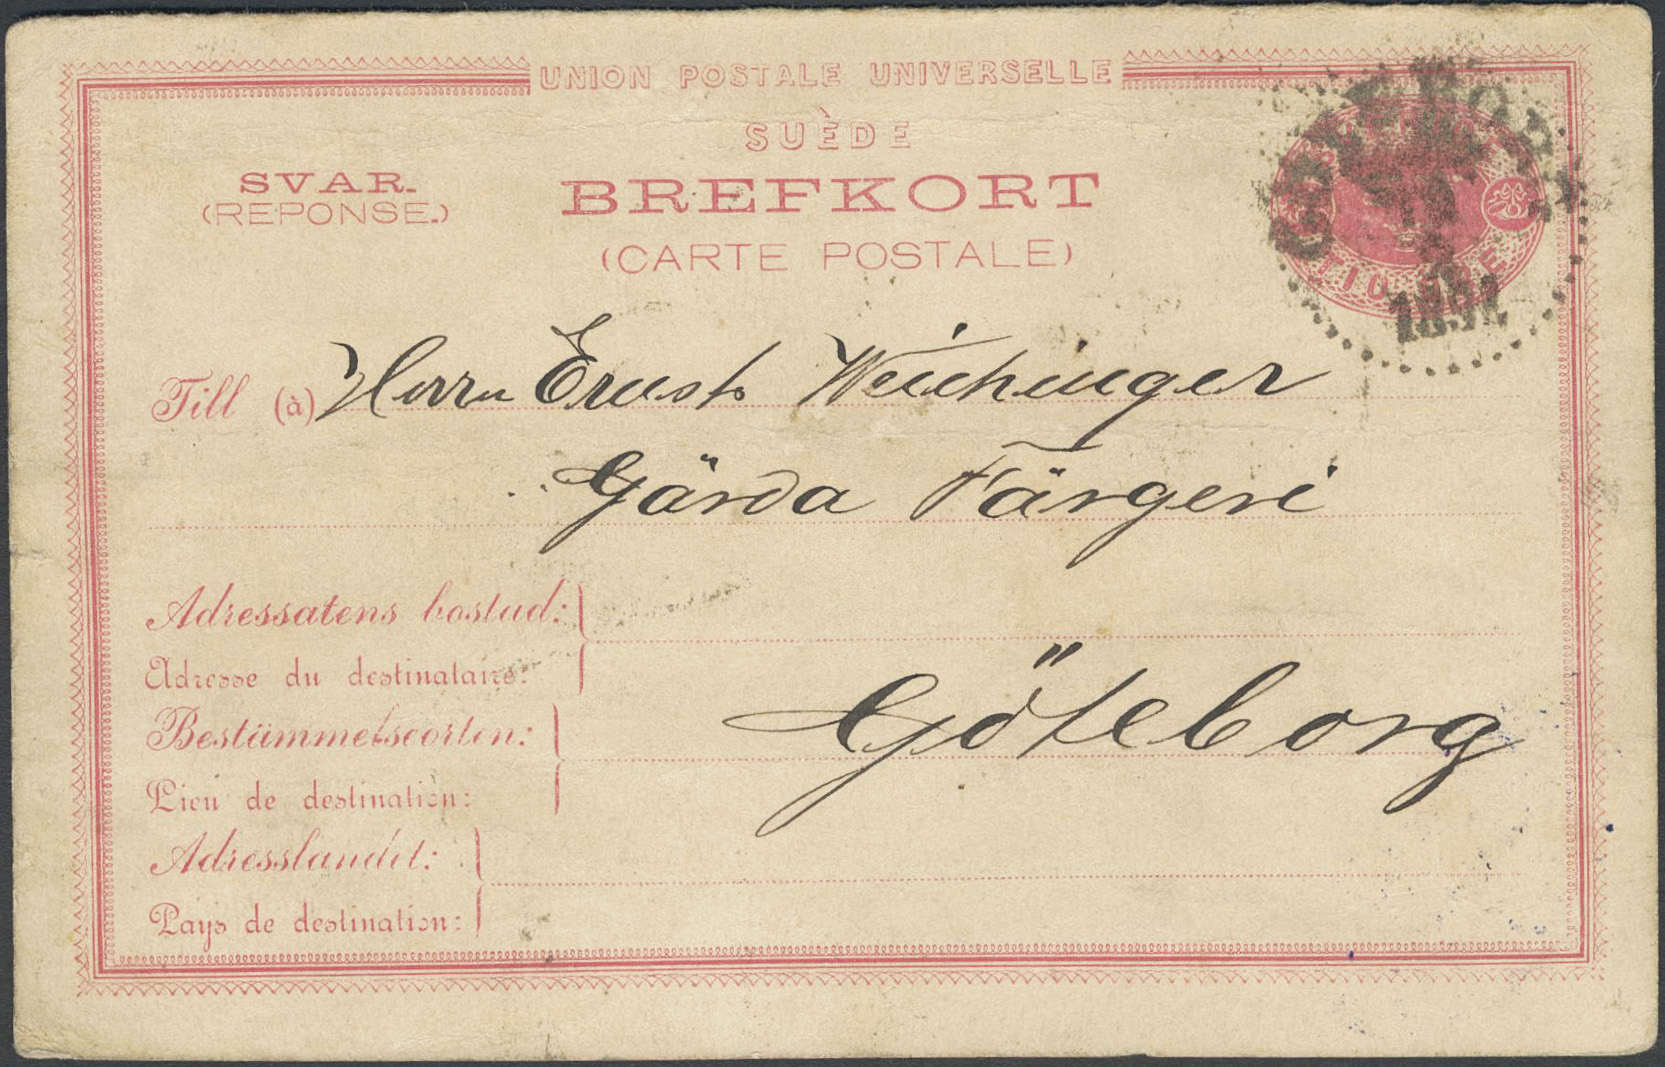 UNION POSTALE UNIVERSELLE
SUÈDE
SVAR.
(REPONSE.)
BREFKORT
(CARTE POSTALE)
TIO ÖRE
Till (à) Herrn Ernst Weichinger
Gårda Färgeri
Adressatens bostad:
Adresse du destinataire:
Göteborg
Bestämmelseorten:
Lieu de destination:
Adresslandet:
Pays de destination: